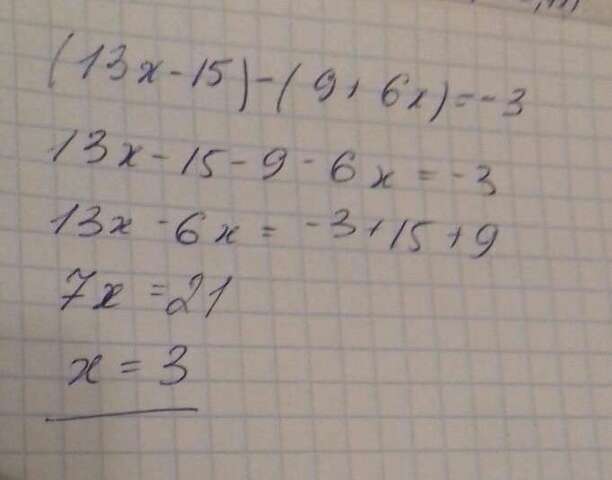 (13x-15)-(9+6x)=-3
13x-15-9-6x=-3
13x-6x=-3+15+9
7x=21
x=3